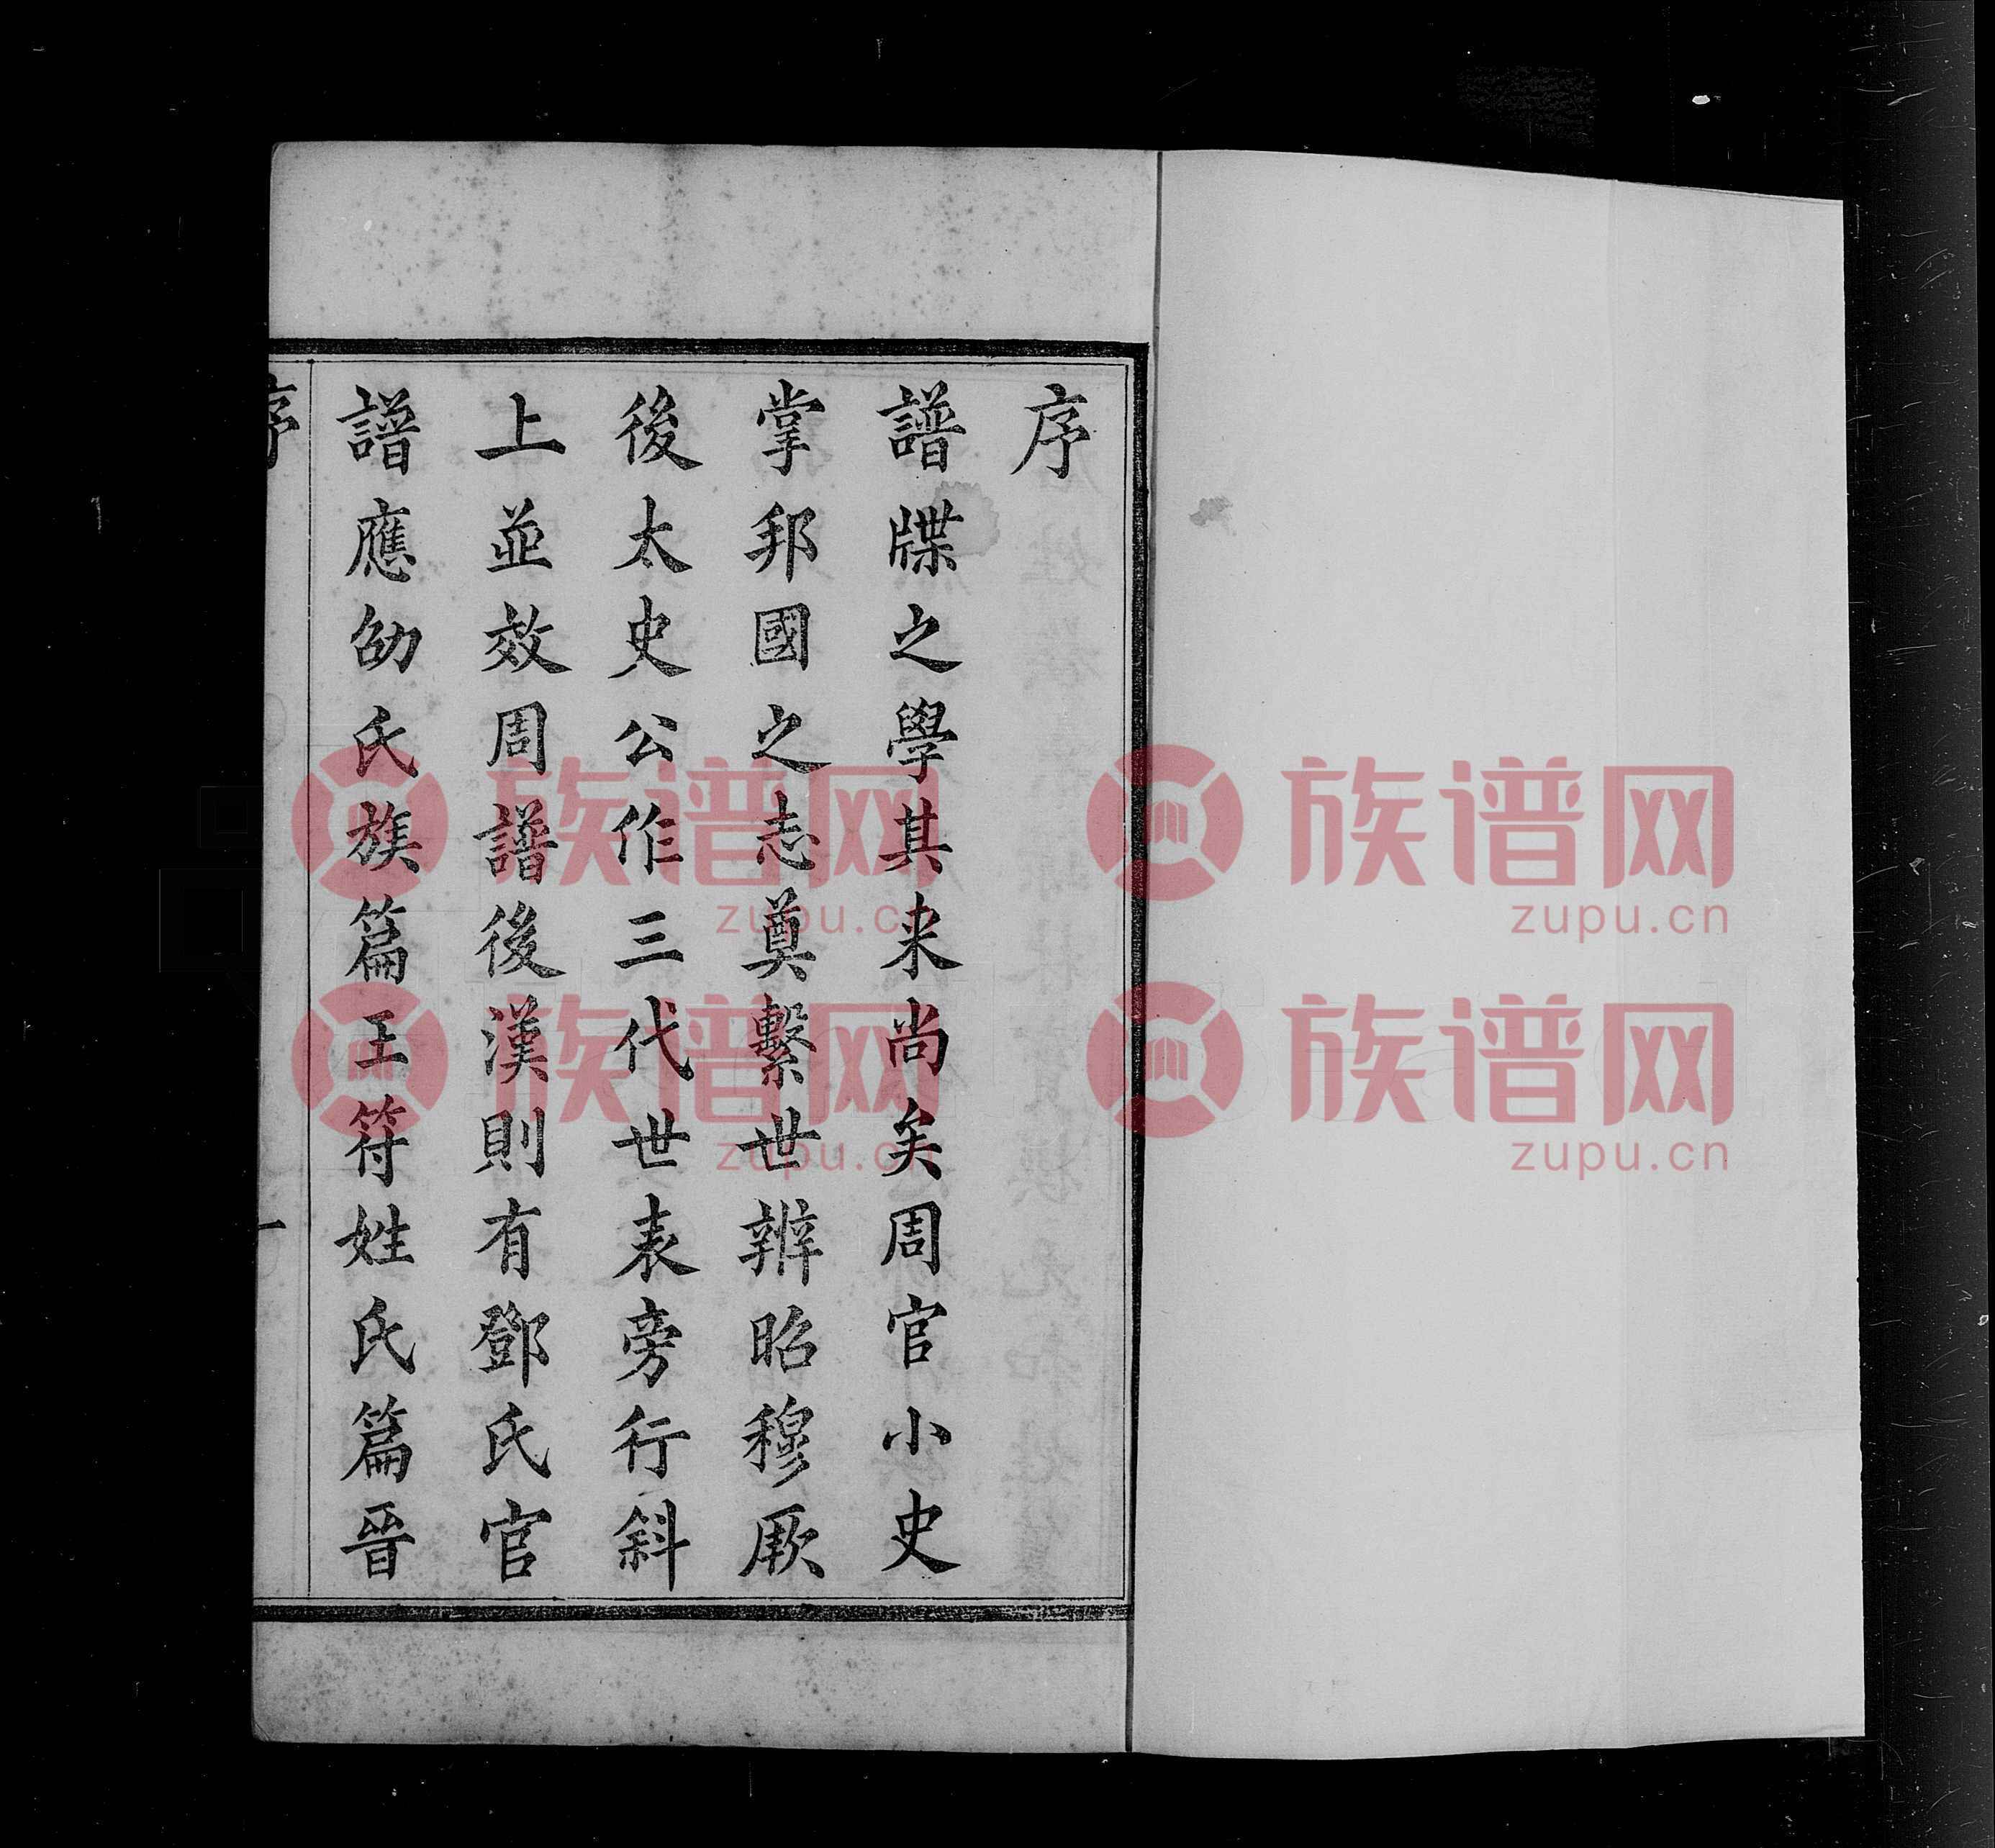 序
譜牒之學其来尚矣周官小史
掌邦國之志奠繫世辨昭穆厥
後太史公作三代世表旁行斜
上並效周譜後漢則有鄧氏官
譜應劭氏族篇王符姓氏篇晉
序
一
族谱网
zupu.cn
族谱网
zupu.cn
族谱网
zupu.cn
族谱网
zupu.cn